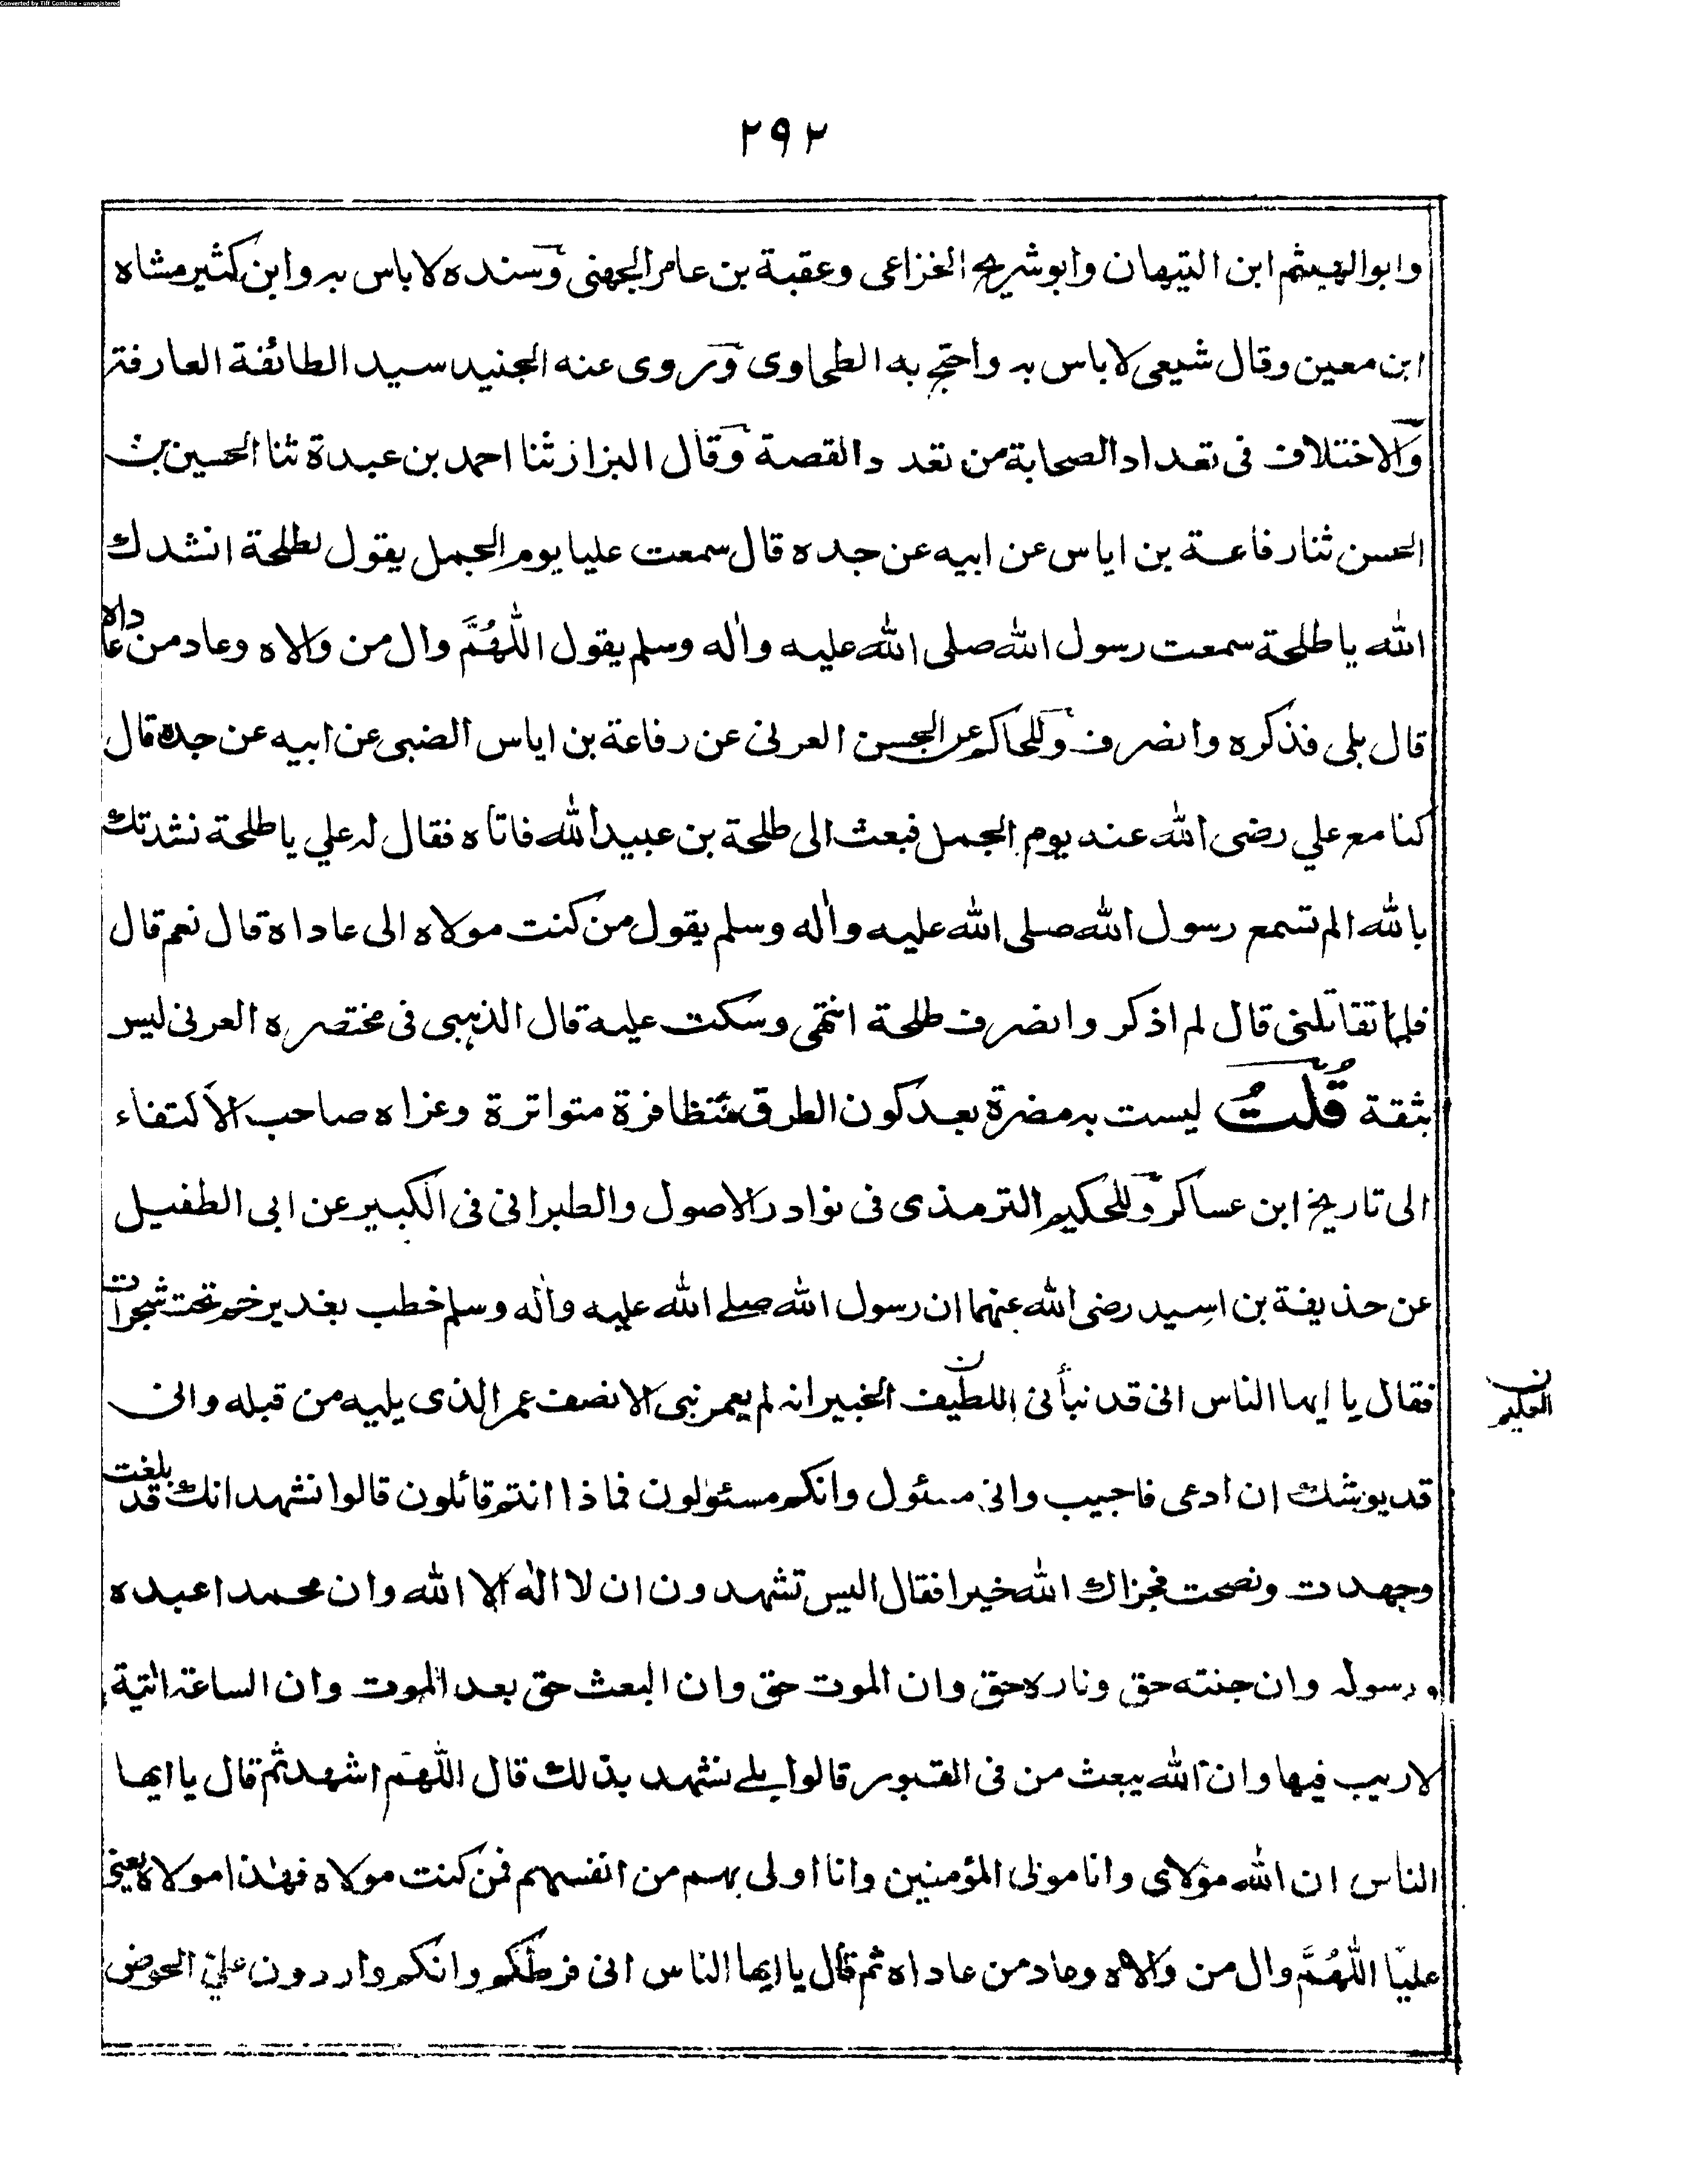 Converted by Tiff Combine - unregistered
٢٩٢
وابوالهيثم ابن التيهان وابوشريح الخزاعى وعقبة بن عامر الجهنى وسنده لاباس به وابن كثير مشاه
ابن معين وقال شيعى لاباس به واحتج به الطحاوى وروى عنه الجنيد سيد الطائفة العارفة
والاختلاف فى تعداد الصحابة من تعدد القصة وقال البزار ثنا احمد بن عبدة ثنا الحسين بن
الحسن ثنا رفاعة بن اياس عن ابيه عن جده قال سمعت عليا يوم الجمل يقول لطلحة انشدك
الله يا طلحة سمعت رسول الله صلى الله عليه واله وسلم يقول اللهم وال من والاه وعاد من عاداه
قال بلى فذكره وانصرف وللحاكم عن الحسن العرنى عن رفاعة بن اياس الضبى عن ابيه عن جده قال
كنا مع علي رضى الله عند يوم الجمل فبعث الى طلحة بن عبيد الله فاتاه فقال له علي يا طلحة نشدتك
بالله الم تسمع رسول الله صلى الله عليه واله وسلم يقول من كنت مولاه الى عاداه قال نعم قال
فلما تقاتلنى قال لم اذكر وانصرف طلحة انتهى وسكت عليه قال الذهبى فى مختصره العرنى ليس
بثقة قُلتُ ليست به مضرة بعد كون الطرق متظافرة متواترة وعزاه صاحب الاكتفاء
الى تاريخ ابن عساكر وللحكيم الترمذى فى نوادر الاصول والطبرانى فى الكبير عن ابى الطفيل
عن حذيفة بن اسيد رضى الله عنهما ان رسول الله صلے الله عليه واله وسلم خطب بغدير خم تحت شجرات
فقال يا ايها الناس انى قد نبأنى اللطيف الخبير انه لم يعمر نبى الا نصف عمر الذى يليه من قبله وانى
ن العليم
قد يوشك ان ادعى فاجيب وانى مسئول وانكم مسئولون فماذا انتم قائلون قالوا نشهد انك قد بلغت
وجهدت ونصحت فجزاك الله خيرا فقال اليس تشهدون ان لا اله الا الله وان محمدا عبده
ورسوله وان جنته حق وناره حق وان الموت حق وان البعث حق بعد الموت وان الساعة اتية
لاريب فيها وان الله يبعث من فى القبور قالوا بلے نشهد بذلك قال اللهم اشهد ثم قال يا ايها
الناس ان الله مولاى وانا مولى المؤمنين وانا اولى بهم من انفسهم فمن كنت مولاه فهذا مولاه يعنى
عليا اللهُمَّ وال من والاه وعاد من عاداه ثم قال يا ايها الناس انى فرطكم وانكم واردون علىّ الحوض